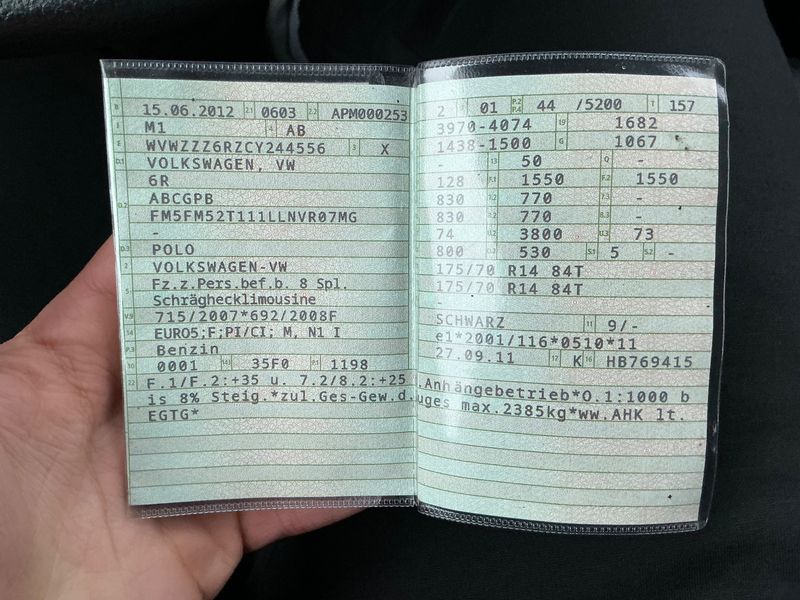 B 15.06.2012 2.1 0603 2.2 APM000253
M1 4 AB
E WVWZZZ6RZCY244556 3 X
D.1 VOLKSWAGEN, VW
6R
D.2 ABCGPB
FM5FM52T111LLNVR07MG
-
D.3 POLO
2 VOLKSWAGEN-VW
5 Fz.z.Pers.bef.b. 8 Spl.
Schräghecklimousine
V.9 715/2007*692/2008F
14 EURO5;F;PI/CI; M, N1 I
P.3 Benzin
10 0001 14.1 35F0 P.1 1198
22 F.1/F.2:+35 u. 7.2/8.2:+25
is 8% Steig.*zul.Ges-Gew.d.
EGTG*
2 01 P.2 P.4 44 /5200 T 157
3970-4074 19 1682
1438-1500 G 1067
- 13 50 Q -
128 F.1 1550 F.2 1550
830 7.2 770 7.3 -
830 8.2 770 8.3 -
74 U.2 3800 U.3 73
800 O.2 530 S.1 5 S.2 -
175/70 R14 84T
175/70 R14 84T
-
SCHWARZ 11 9/-
e1*2001/116*0510*11
27.09.11 17 K 16 HB769415
.Anhängebetrieb*O.1:1000 b
uges max.2385kg*ww.AHK lt.